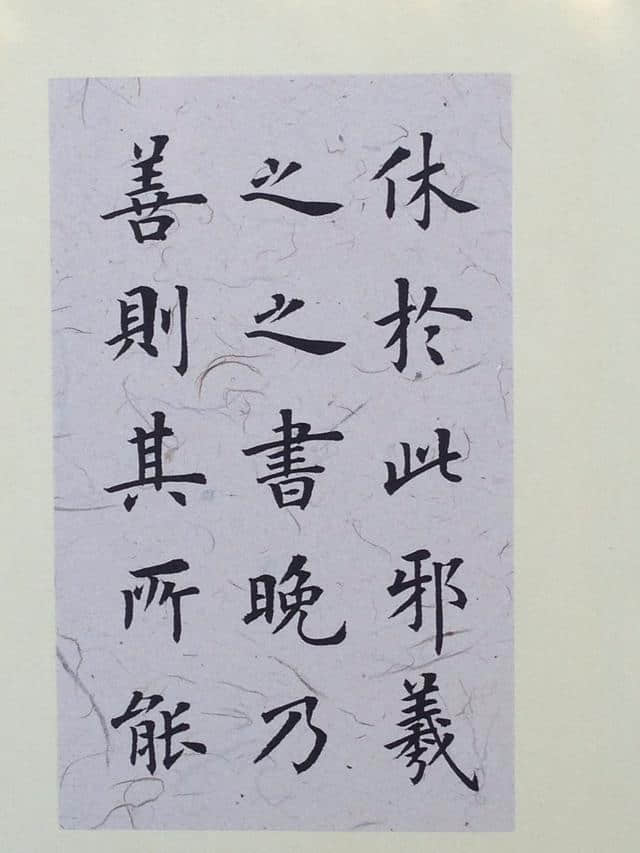 休於此邪羲
之之書晚乃
善則其所能